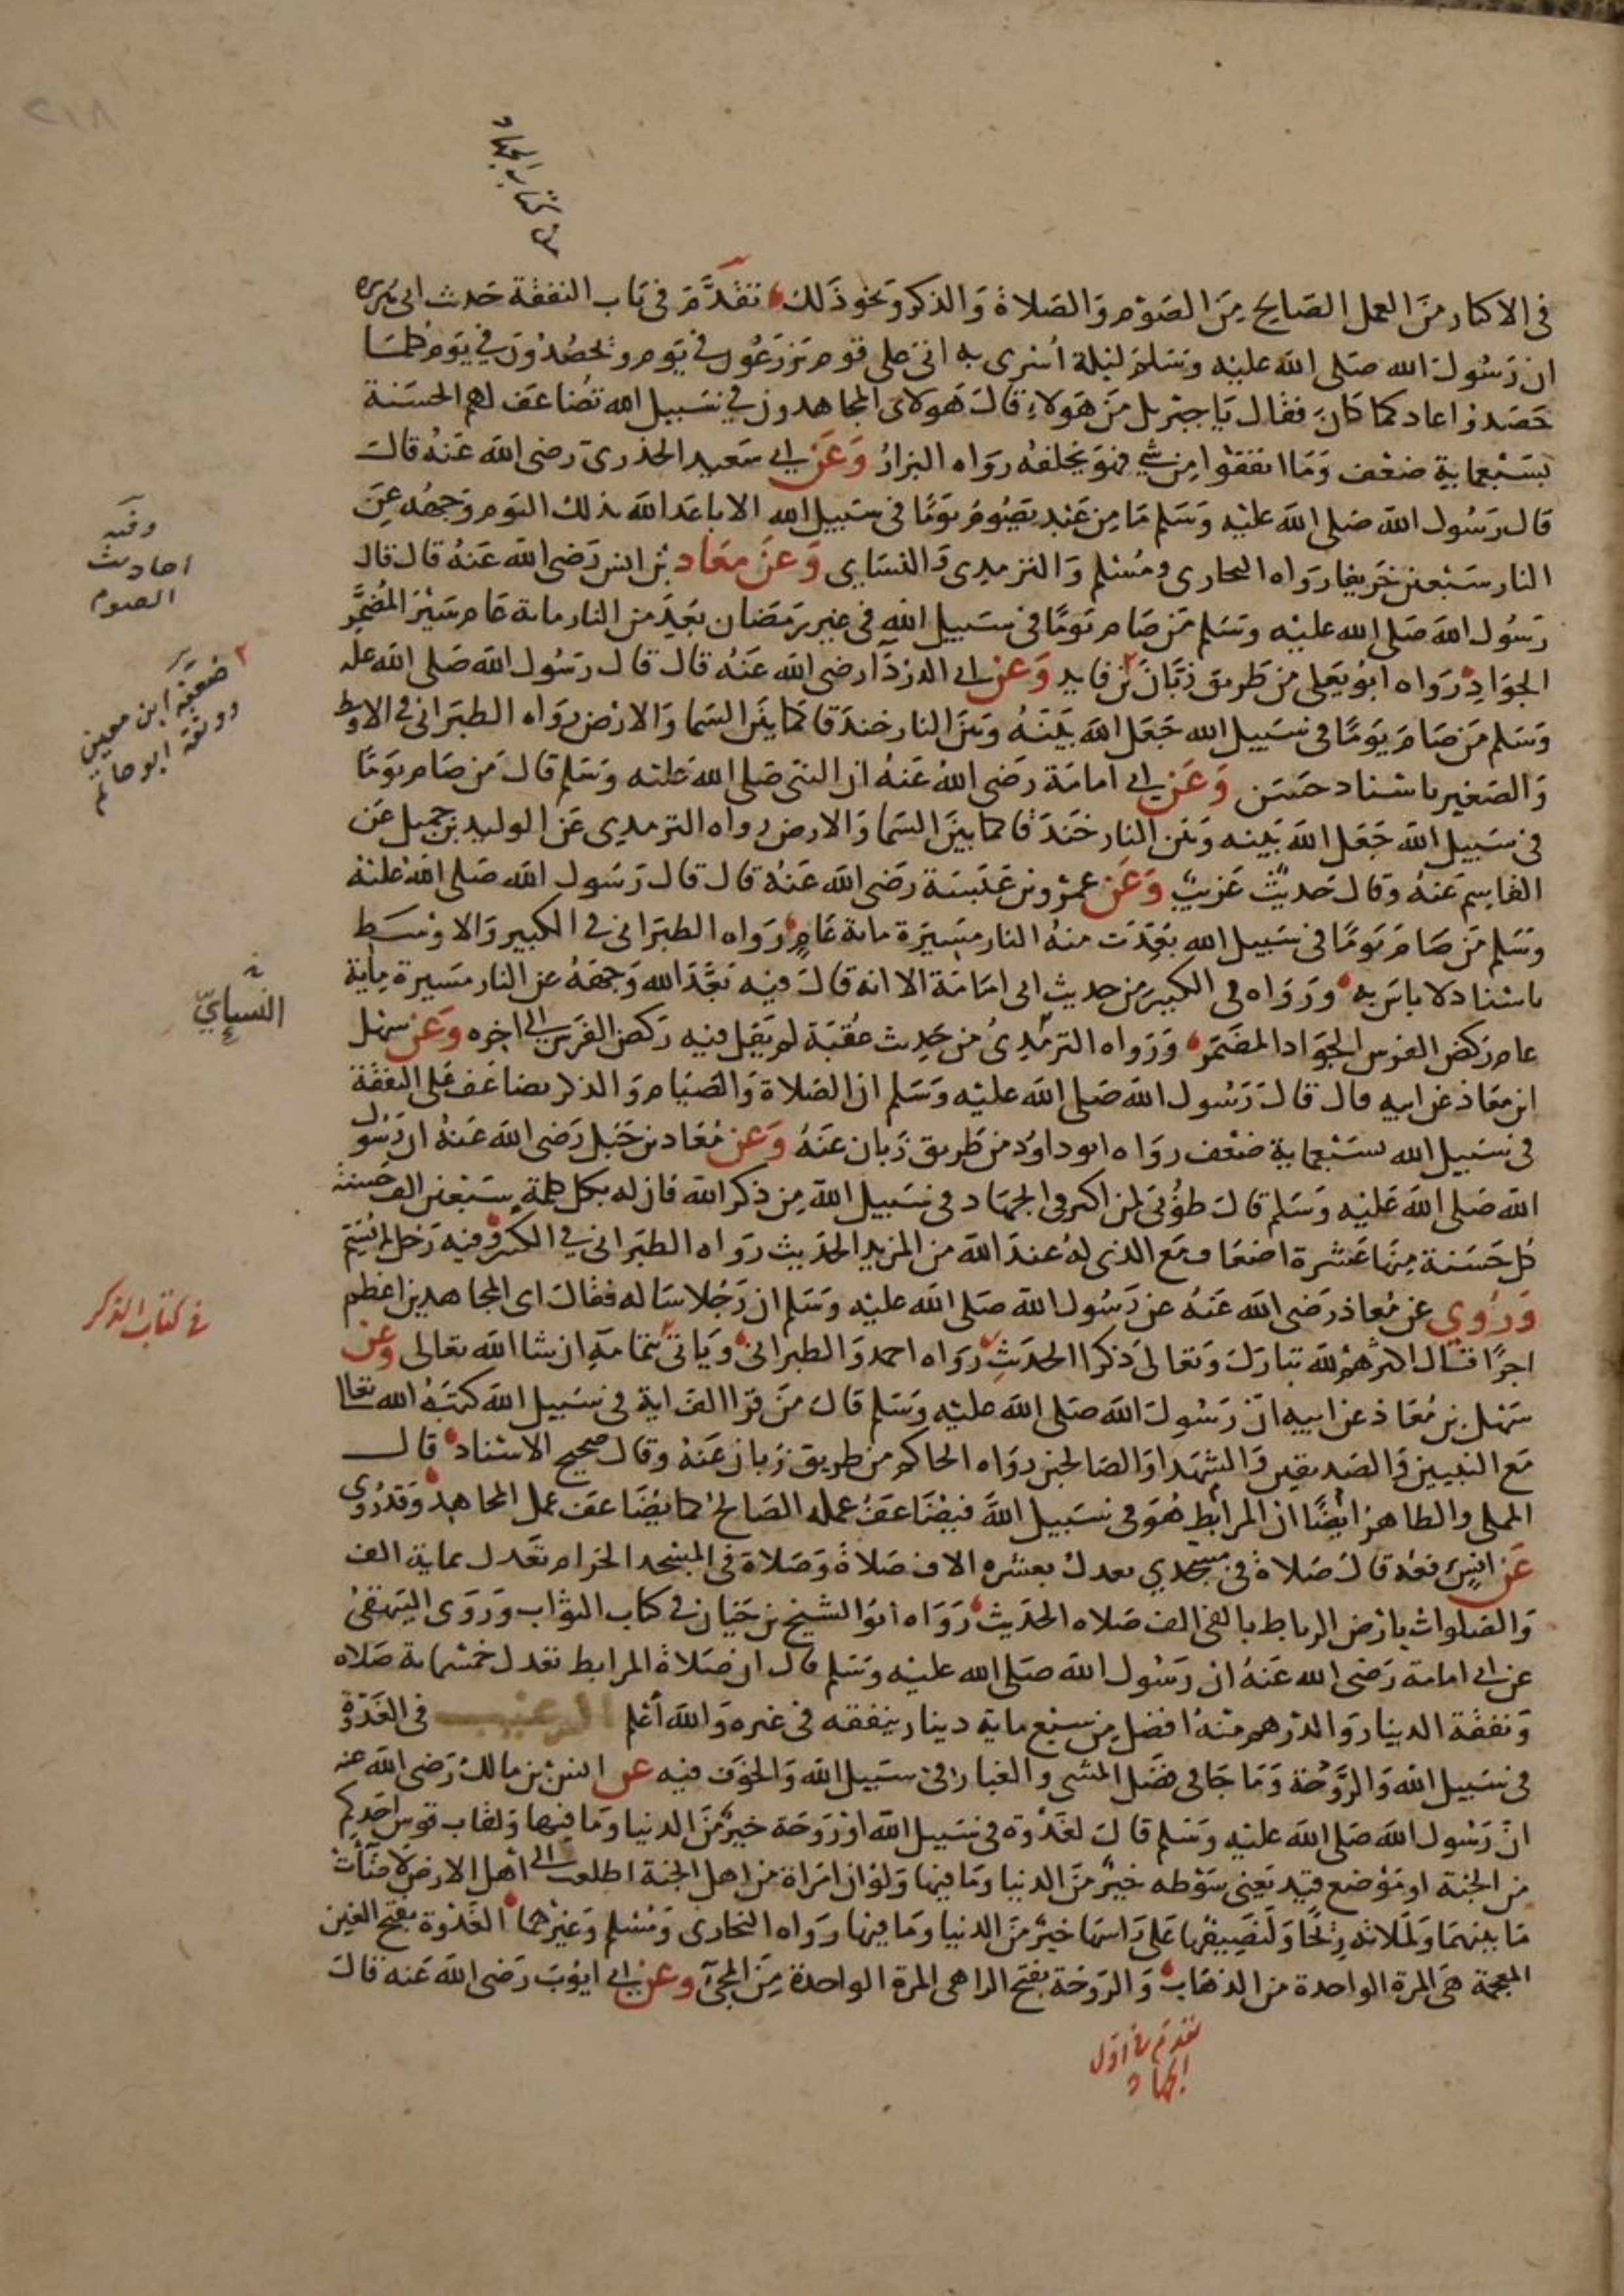 ٢١٨
من كتاب الجهاد
في الاكثار من العمل الصالح من الصوم والصلاة والذكر ونحو ذلك تقدم في باب النفقة حديث ابي هريرة
ان رسول الله صلى الله عليه وسلم ليلة اسري به اتى على قوم يزرعون في يوم ويحصدون في يوم كلما
حصدوا عاد كما كان فقال يا جبريل من هولاء قال هولاى المجاهدون في سبيل الله تضاعف لهم الحسنة
بسبعماية ضعف وما انفقوا من شي فهو يخلفه رواه البزار وعن ابي سعيد الخدري رضي الله عنه قال
قال رسول الله صلى الله عليه وسلم ما من عبد يصوم يوما في سبيل الله الا باعد الله بذلك اليوم وجهه عن
النار سبعين خريفا رواه البخاري ومسلم والترمذي والنساي وعن معاذ بن انس رضي الله عنه قال قال
رسول الله صلى الله عليه وسلم من صام يوما في سبيل الله في غير رمضان بعد من النار ماية عام سير المضمر
الجواد رواه ابو يعلى من طريق زبان بن فايد وعن ابي الدردا رضي الله عنه قال قال رسول الله صلى الله عله
وسلم من صام يوما في سبيل الله جعل الله بينه وبين النار خندقا كما بين السما والارض رواه الطبراني في الاوسط
والصغير باسناد حسن وعن ابي امامة رضي الله عنه ان النبي صلى الله عليه وسلم قال من صام يوما
في سبيل الله جعل الله بينه وبين النار خندقا كما بين السما والارض رواه الترمذي عن الوليد بن جميل عن
القاسم عنه وقال حديث غريب وعن عمرو بن عبسة رضي الله عنه قال قال رسول الله صلى الله عليه
وسلم من صام يوما في سبيل الله بعدت منه النار مسيرة ماية عام رواه الطبراني في الكبير والاوسط
باسناد لا باس به ورواه في الكبير من حديث ابي امامة الا انه قال فيه بعد الله وجهه عن النار مسيرة ماية
عام ركض الفرس الجواد المضمر ورواه الترمذي من حديث عقبة لم يقل فيه ركض الفرس الى اخره وعن سهل
ابن معاذ عن ابيه قال قال رسول الله صلى الله عليه وسلم ان الصلاة والصيام والذكر يضاعف على النفقة
في سبيل الله بسبعماية ضعف رواه ابو داود من طريق زبان عنه وعن معاذ بن جبل رضي الله عنه ان رسول
الله صلى الله عليه وسلم قال طوبى لمن اكثر في الجهاد في سبيل الله من ذكر الله فان له بكل كلمة سبعين الف حسنة
كل حسنة منها عشرة اضعاف مع الذي له عند الله من المزيد الحديث رواه الطبراني في الكبير وفيه رجل لم يسم
وروي عن معاذ رضي الله عنه عن رسول الله صلى الله عليه وسلم ان رجلا ساله فقال اي المجاهدين اعظم
اجرا قال اكثرهم لله تبارك وتعالى ذكرا الحديث رواه احمد والطبراني وياتي بتمامه ان شا الله تعالى وعن
سهل بن معاذ عن ابيه ان رسول الله صلى الله عليه وسلم قال من قرا الف اية في سبيل الله كتبه الله تعالا
مع النبيين والصديقين والشهدا والصالحين رواه الحاكم من طريق زبان عنه وقال صحيح الاسناد قال
المملي والظاهر ايضا ان المرابط هو في سبيل الله فيضاعف عمله الصالح كما يضاعف عمل المجاهد وقد روي
عن انس رفعه قال صلاة في مسجدي تعدل بعشره الاف صلاة وصلاة في المسجد الحرام تعدل بماية الف
والصلوات بارض الرباط بالفي الف صلاه الحديث رواه ابو الشيخ بن حيان في كتاب الثواب وروى البيهقي
عن ابي امامة رضي الله عنه ان رسول الله صلى الله عليه وسلم قال ان صلاة المرابط تعدل خمسماية صلاه
ونفقة الدينار والدرهم منه افضل من سبع ماية دينار ينفقه في غيره والله اعلم الترغيب في الغدوة
في سبيل الله والروحة وما جا في فضل المشي والغبار في سبيل الله والخوف فيه عن انس بن مالك رضي الله عنه
ان رسول الله صلى الله عليه وسلم قال لغدوة في سبيل الله او روحة خير من الدنيا وما فيها ولقاب قوس احدكم
من الجنة او موضع قيد يعني سوطه خير من الدنيا وما فيها ولو ان امراة من اهل الجنة اطلعت الى اهل الارض لاضأت
ما بينهما ولملاته ريحا ولنصيفها على راسها خير من الدنيا وما فيها رواه البخاري ومسلم وغيرهما الغدوة بفتح الغين
المعجمة هي المرة الواحدة من الذهاب والروحة بفتح الرا هي المرة الواحدة من المجئ وعن ابي ايوب رضي الله عنه قال
وفيه
احاديث
الصوم
٢ ضعفه ابن معين
ووثقه ابو حاتم
النسايي
في كتاب الذكر
تقدم في اول
الجهاد